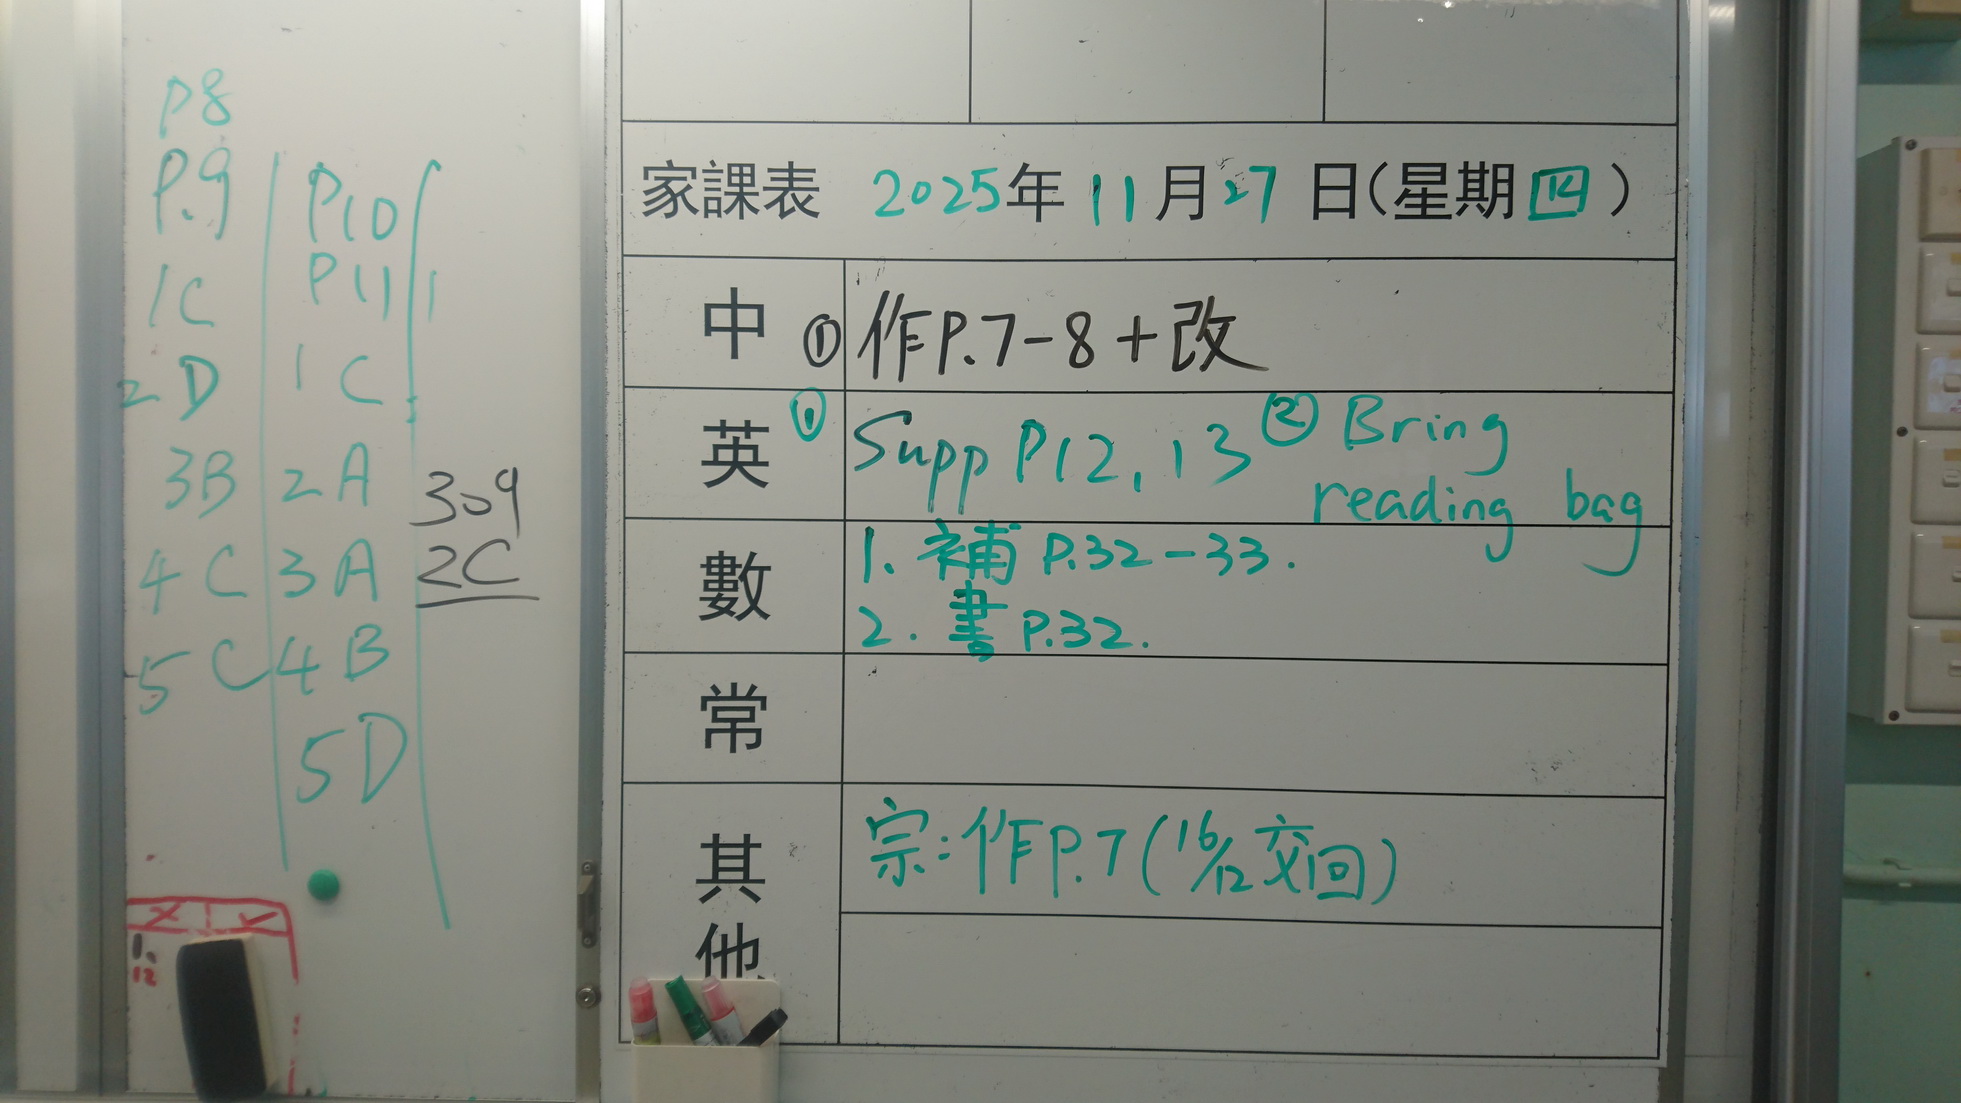 P8
P.9
1C
2D
3B
4C
5C
P10
P11
1C
2A
3A
4B
5D
309
2C
1.
12
家課表 2025年11月27日(星期四)
中 ① 作P.7-8+改
英 ① Supp P12,13 ② Bring
reading bag
數 1. 補 P.32-33.
2. 書 P.32.
常
其他 宗:作P.7(16/12交回)